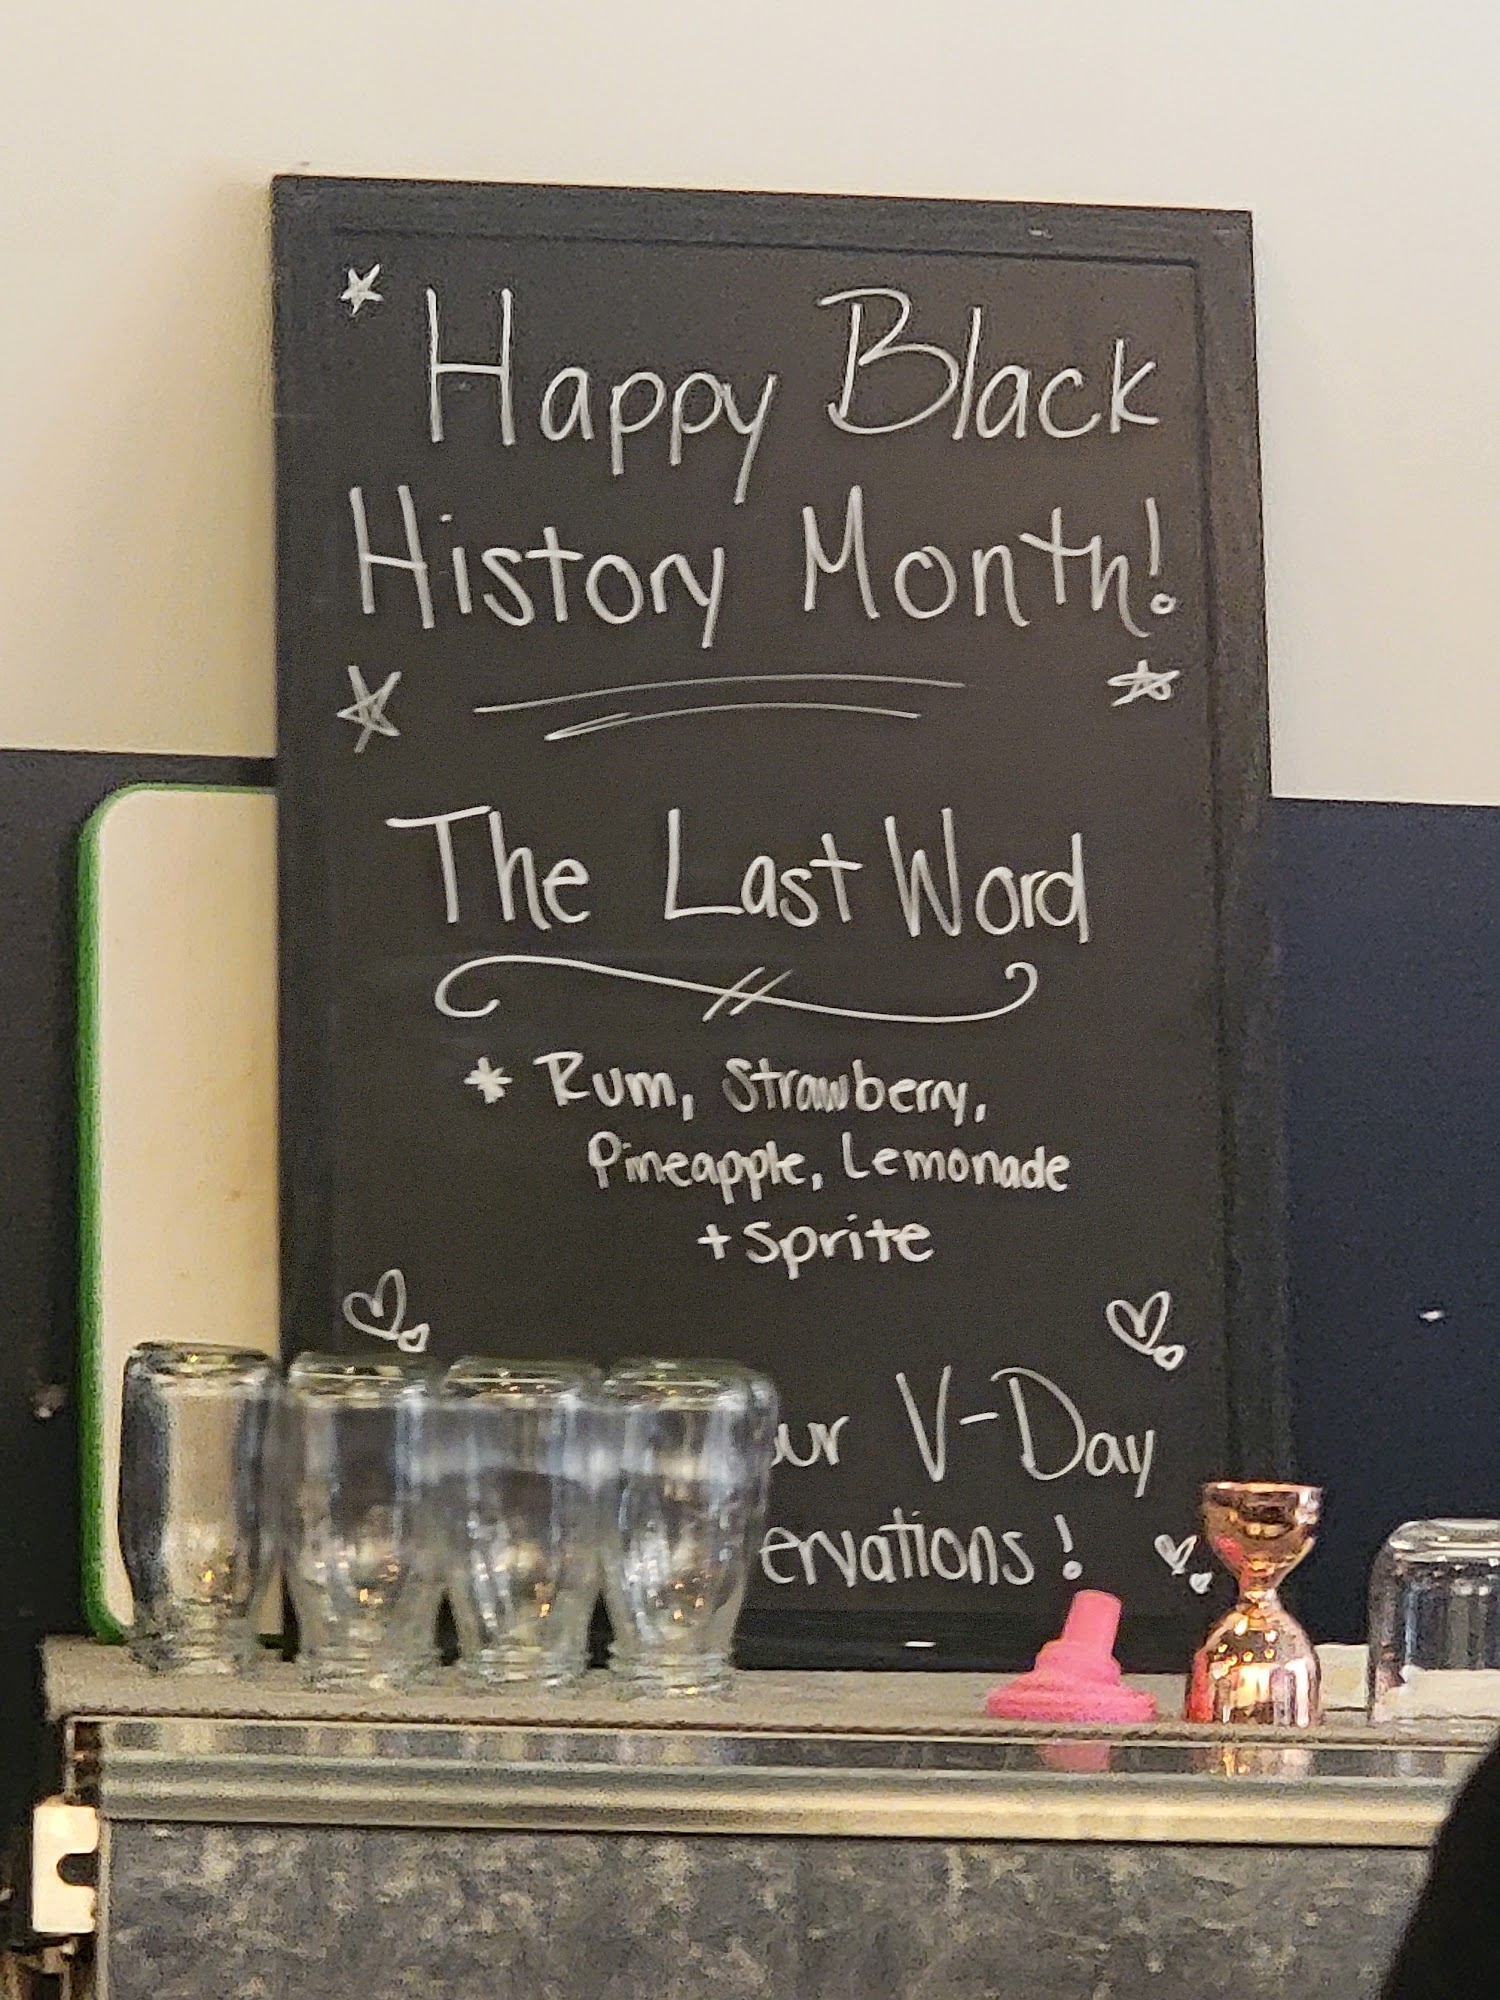 Happy Black
History Month!
The Last Word
* Rum, Strawberry,
Pineapple, Lemonade
+ Sprite
V-Day
!